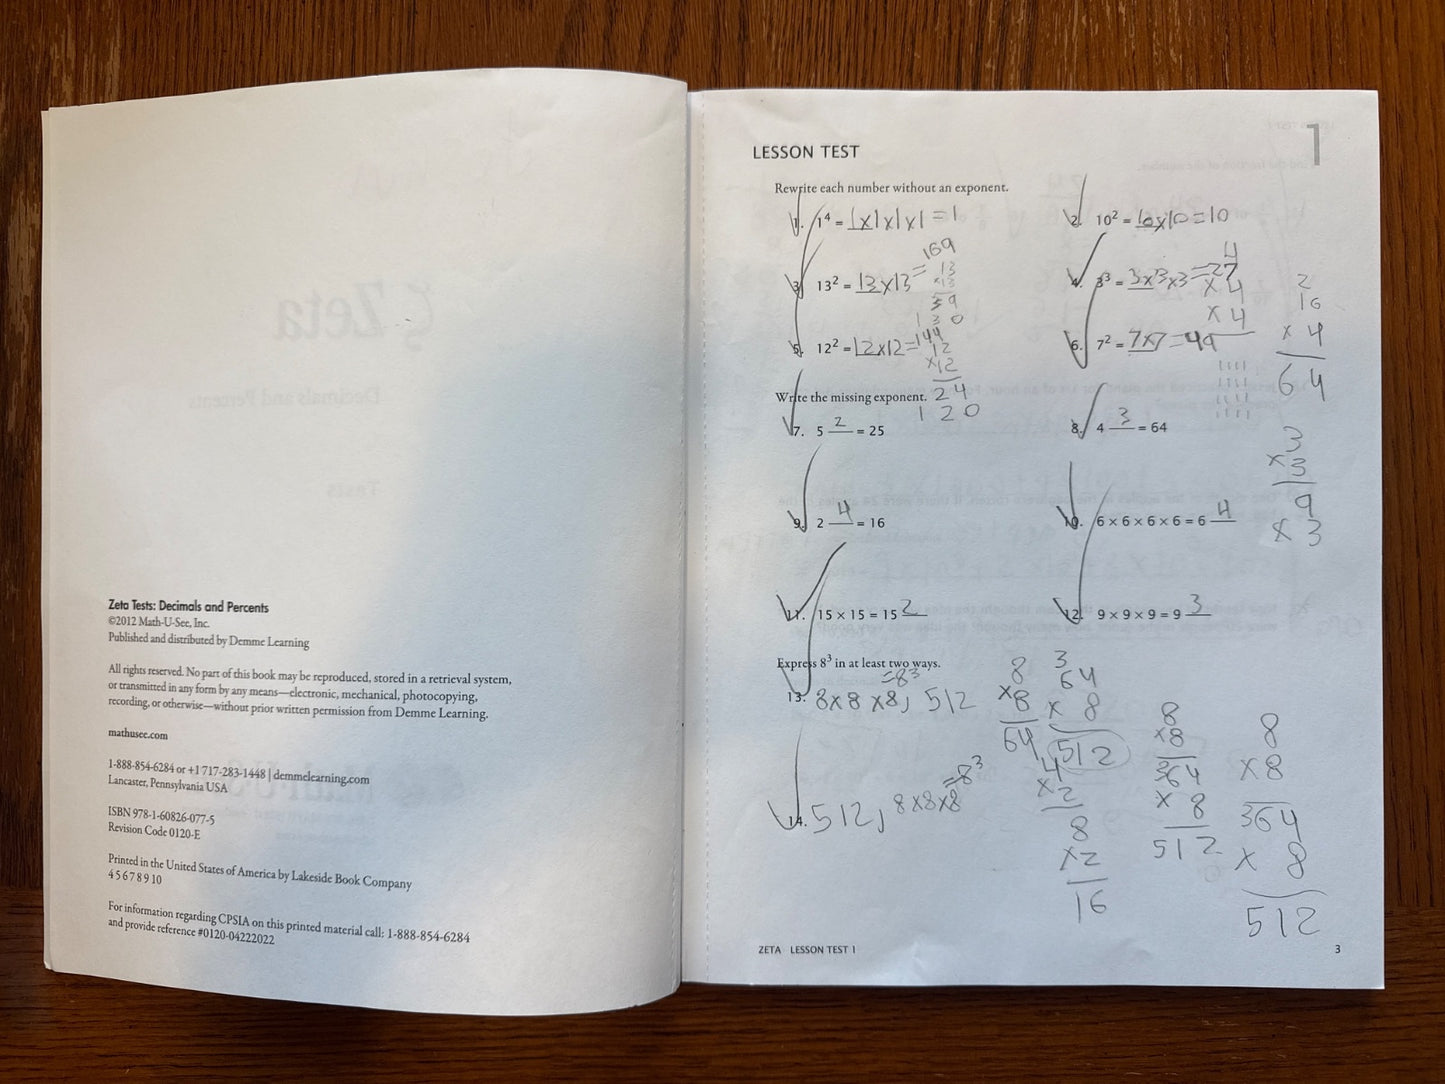 Zeta
Decimals and Percents
Tests
Zeta Tests: Decimals and Percents
©2012 Math-U-See, Inc.
Published and distributed by Demme Learning
All rights reserved. No part of this book may be reproduced, stored in a retrieval system,
or transmitted in any form by any means—electronic, mechanical, photocopying,
recording, or otherwise—without prior written permission from Demme Learning.
mathusee.com
1-888-854-6284 or +1 717-283-1448 | demmelearning.com
Lancaster, Pennsylvania USA
ISBN 978-1-60826-077-5
Revision Code 0120-E
Printed in the United States of America by Lakeside Book Company
4 5 6 7 8 9 10
For information regarding CPSIA on this printed material call: 1-888-854-6284
and provide reference #0120-04222022
LESSON TEST
1
Rewrite each number without an exponent.
1. 1⁴ = 1x1x1x1 = 1
2. 10² = 10x10=10
3. 13² = 13x13 = 169
13
x13
39
130
4. 3³ = 3x3x3 =27
4
x 4
x 4
5. 12² = 12x12=144
12
x12
24
120
6. 7² = 7x7=49
2
16
x 4
64
Write the missing exponent.
7. 5 2 = 25
8. 4 3 = 64
3
x3
9
x 3
9. 2 4 = 16
10. 6 × 6 × 6 × 6 = 6 4
11. 15 × 15 = 15 2
12. 9 × 9 × 9 = 9 3
Express 8³ in at least two ways.
13. 8x8x8=8³, 512
8
x8
64
3
64
x 8
512
14. 512, 8x8x8=8³
4
x2
8
x2
16
8
x8
364
x 8
512
8
x8
364
x 8
512
ZETA LESSON TEST 1
3